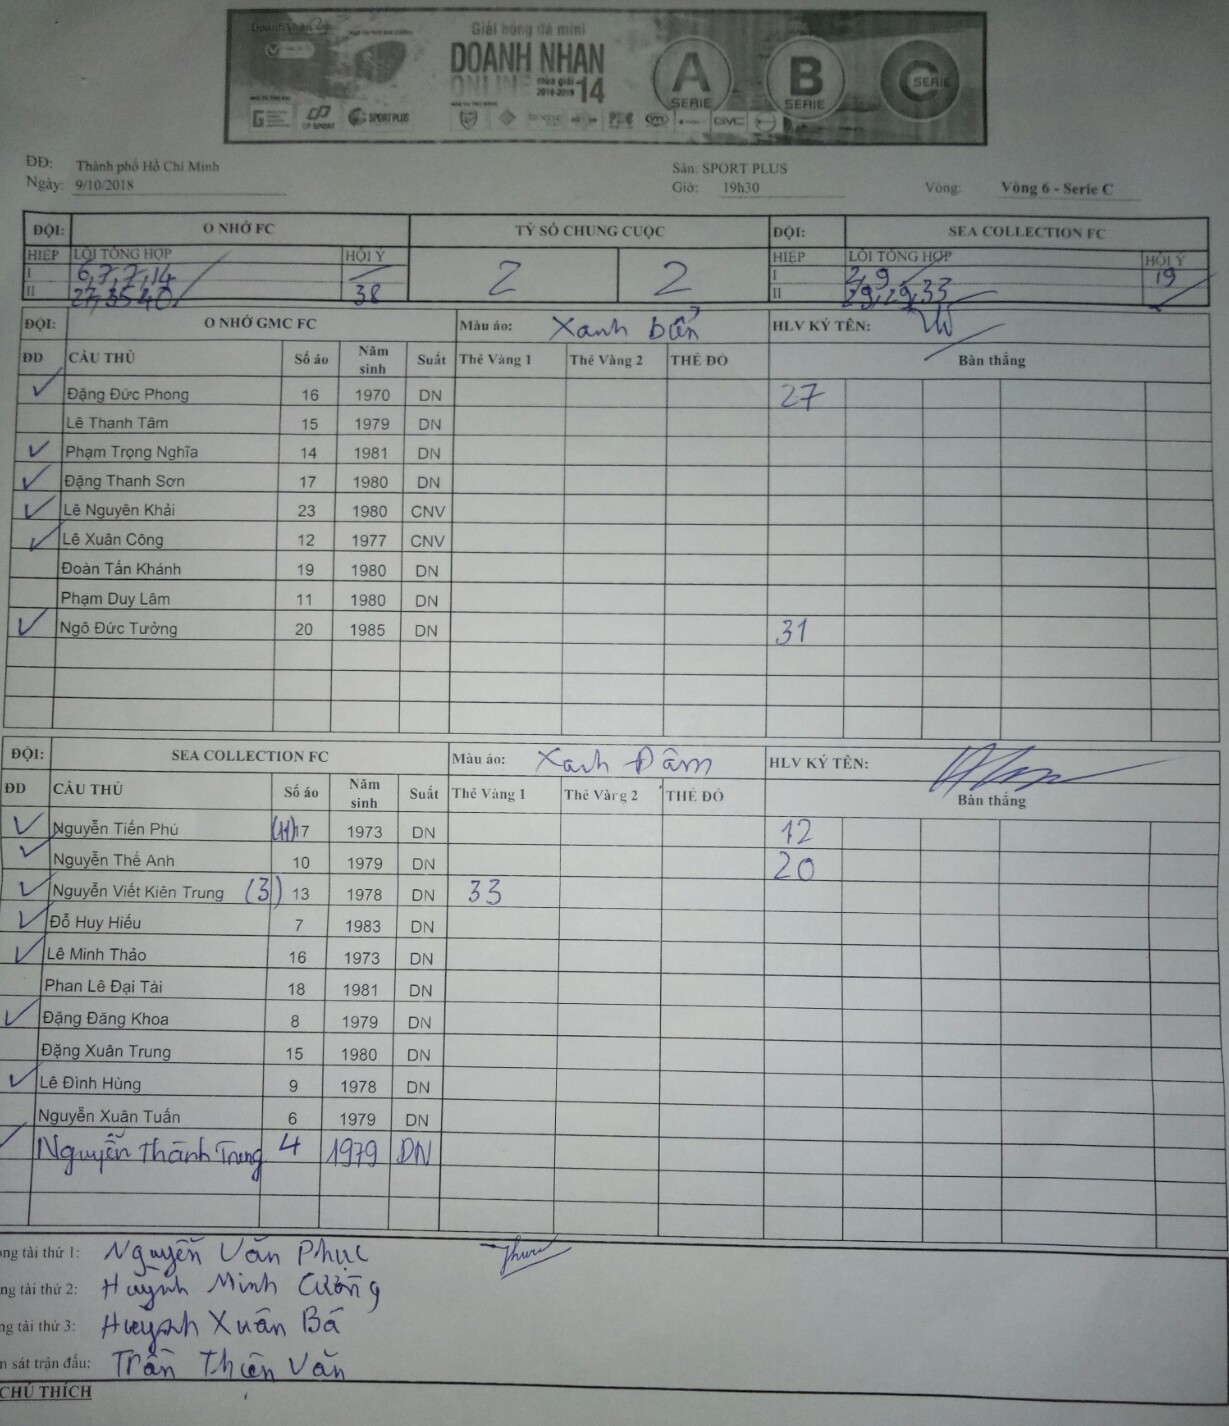 DoanhNhan
Giải bóng đá mini
DOANH NHAN
ONLINE mùa giải 2018-2019 14
A SERIE
B SERIE
C SERIE
SPORTPLUS
GMC
ĐĐ: Thành phố Hồ Chí Minh
Sân: SPORT PLUS
Ngày: 9/10/2018
Giờ: 19h30
Vòng: Vòng 6 - Serie C
ĐỘI: O NHỚ FC TỶ SỐ CHUNG CUỘC ĐỘI: SEA COLLECTION FC
HIỆP LỖI TỔNG HỢP HỘI Ý 2 2 HIỆP LỖI TỔNG HỢP HỘI Ý
I 6,7,7,14 I 2,9 19
II 27,35,40 38 II 29,29,33
ĐỘI: O NHỚ GMC FC Màu áo: Xanh biển HLV KÝ TÊN:
ĐD CẦU THỦ Số áo Năm sinh Suất Thẻ Vàng 1 Thẻ Vàng 2 THẺ ĐỎ Bàn thắng
Đặng Đức Phong 16 1970 DN 27
Lê Thanh Tâm 15 1979 DN
Phạm Trọng Nghĩa 14 1981 DN
Đặng Thanh Sơn 17 1980 DN
Lê Nguyên Khải 23 1980 CNV
Lê Xuân Công 12 1977 CNV
Đoàn Tấn Khánh 19 1980 DN
Phạm Duy Lâm 11 1980 DN
Ngô Đức Tưởng 20 1985 DN 31
ĐỘI: SEA COLLECTION FC Màu áo: Xanh Đậm HLV KÝ TÊN:
ĐD CẦU THỦ Số áo Năm sinh Suất Thẻ Vàng 1 Thẻ Vàng 2 THẺ ĐỎ Bàn thắng
Nguyễn Tiến Phú (11) 17 1973 DN 12
Nguyễn Thế Anh 10 1979 DN 20
Nguyễn Viết Kiên Trung (3) 13 1978 DN 33
Đỗ Huy Hiếu 7 1983 DN
Lê Minh Thảo 16 1973 DN
Phan Lê Đại Tài 18 1981 DN
Đặng Đăng Khoa 8 1979 DN
Đặng Xuân Trung 15 1980 DN
Lê Đình Hùng 9 1978 DN
Nguyễn Xuân Tuấn 6 1979 DN
Nguyễn Thành Trung 4 1979 DN
ọng tài thứ 1: Nguyễn Văn Phục
ng tài thứ 2: Huỳnh Minh Cường
ng tài thứ 3: Huỳnh Xuân Bá
n sát trận đấu: Trần Thiên Văn
CHÚ THÍCH